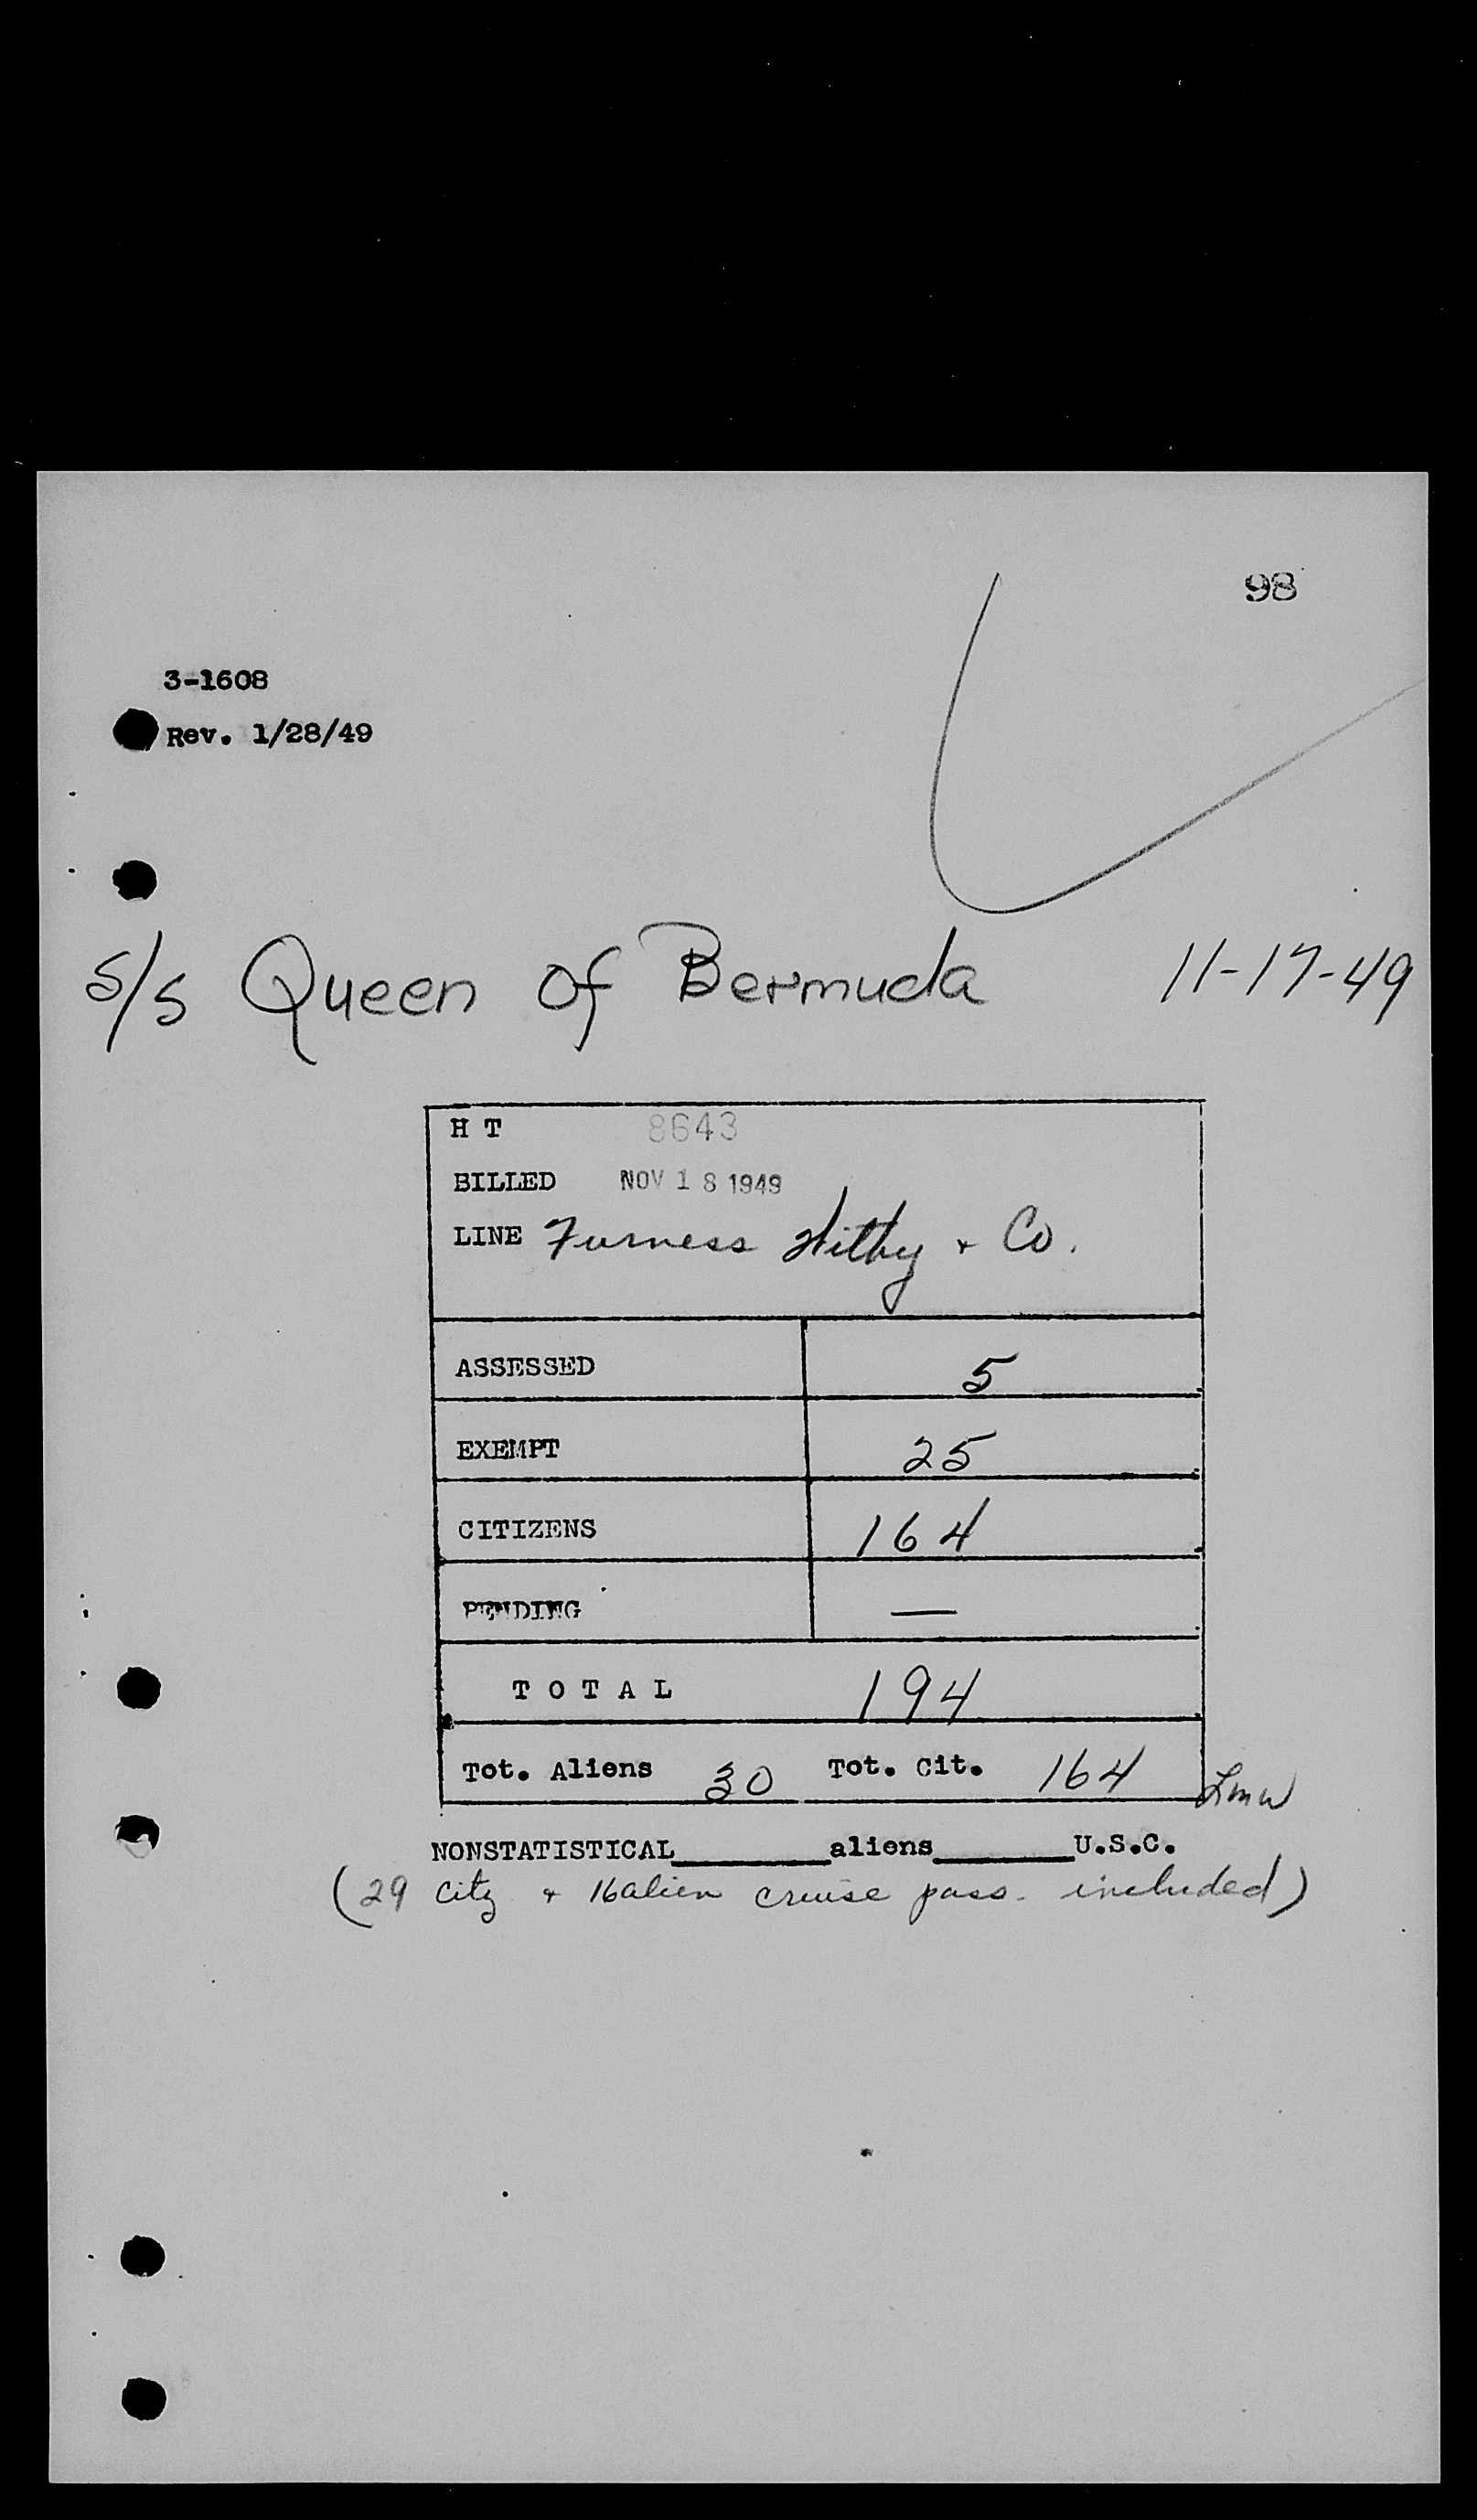 98
3-1608
Rev. 1/28/49
S/S Queen of Bermuda 11-17-49
H T 8643
BILLED NOV 18 1949
LINE Furness Withy & Co.
ASSESSED 5
EXEMPT 25
CITIZENS 164
PENDING —
T O T A L 194
Tot. Aliens 30 Tot. Cit. 164 Lmw
NONSTATISTICAL________aliens_______U.S.C.
(29 citz & 16 alien cruise pass. included)